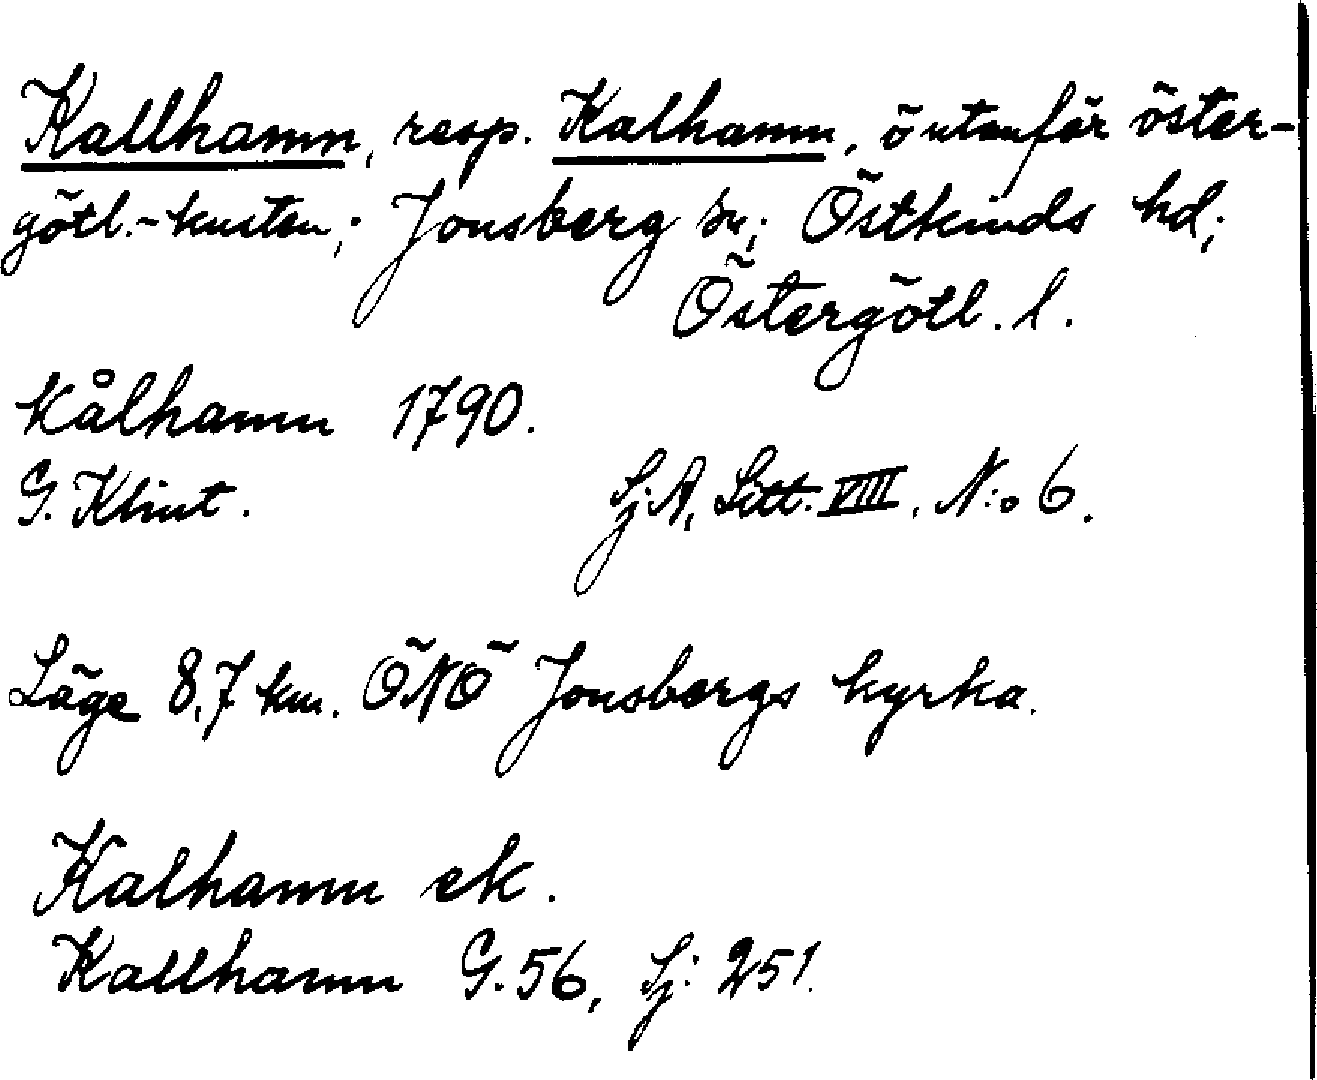 Kallhamn, resp. Kalhamn, ö utanför öster-
götl.-kusten; Jonsberg sn; Östkinds hd;
Östergötl. l.
Kålhamn 1790.
G. Klint. Sj.A, Litt. VIII, N:o 6.
Läge 8,7 km. ÖNÖ Jonsbergs kyrka.
Kalhamn ek.
Kallhamn G. 56, Sj: 251.